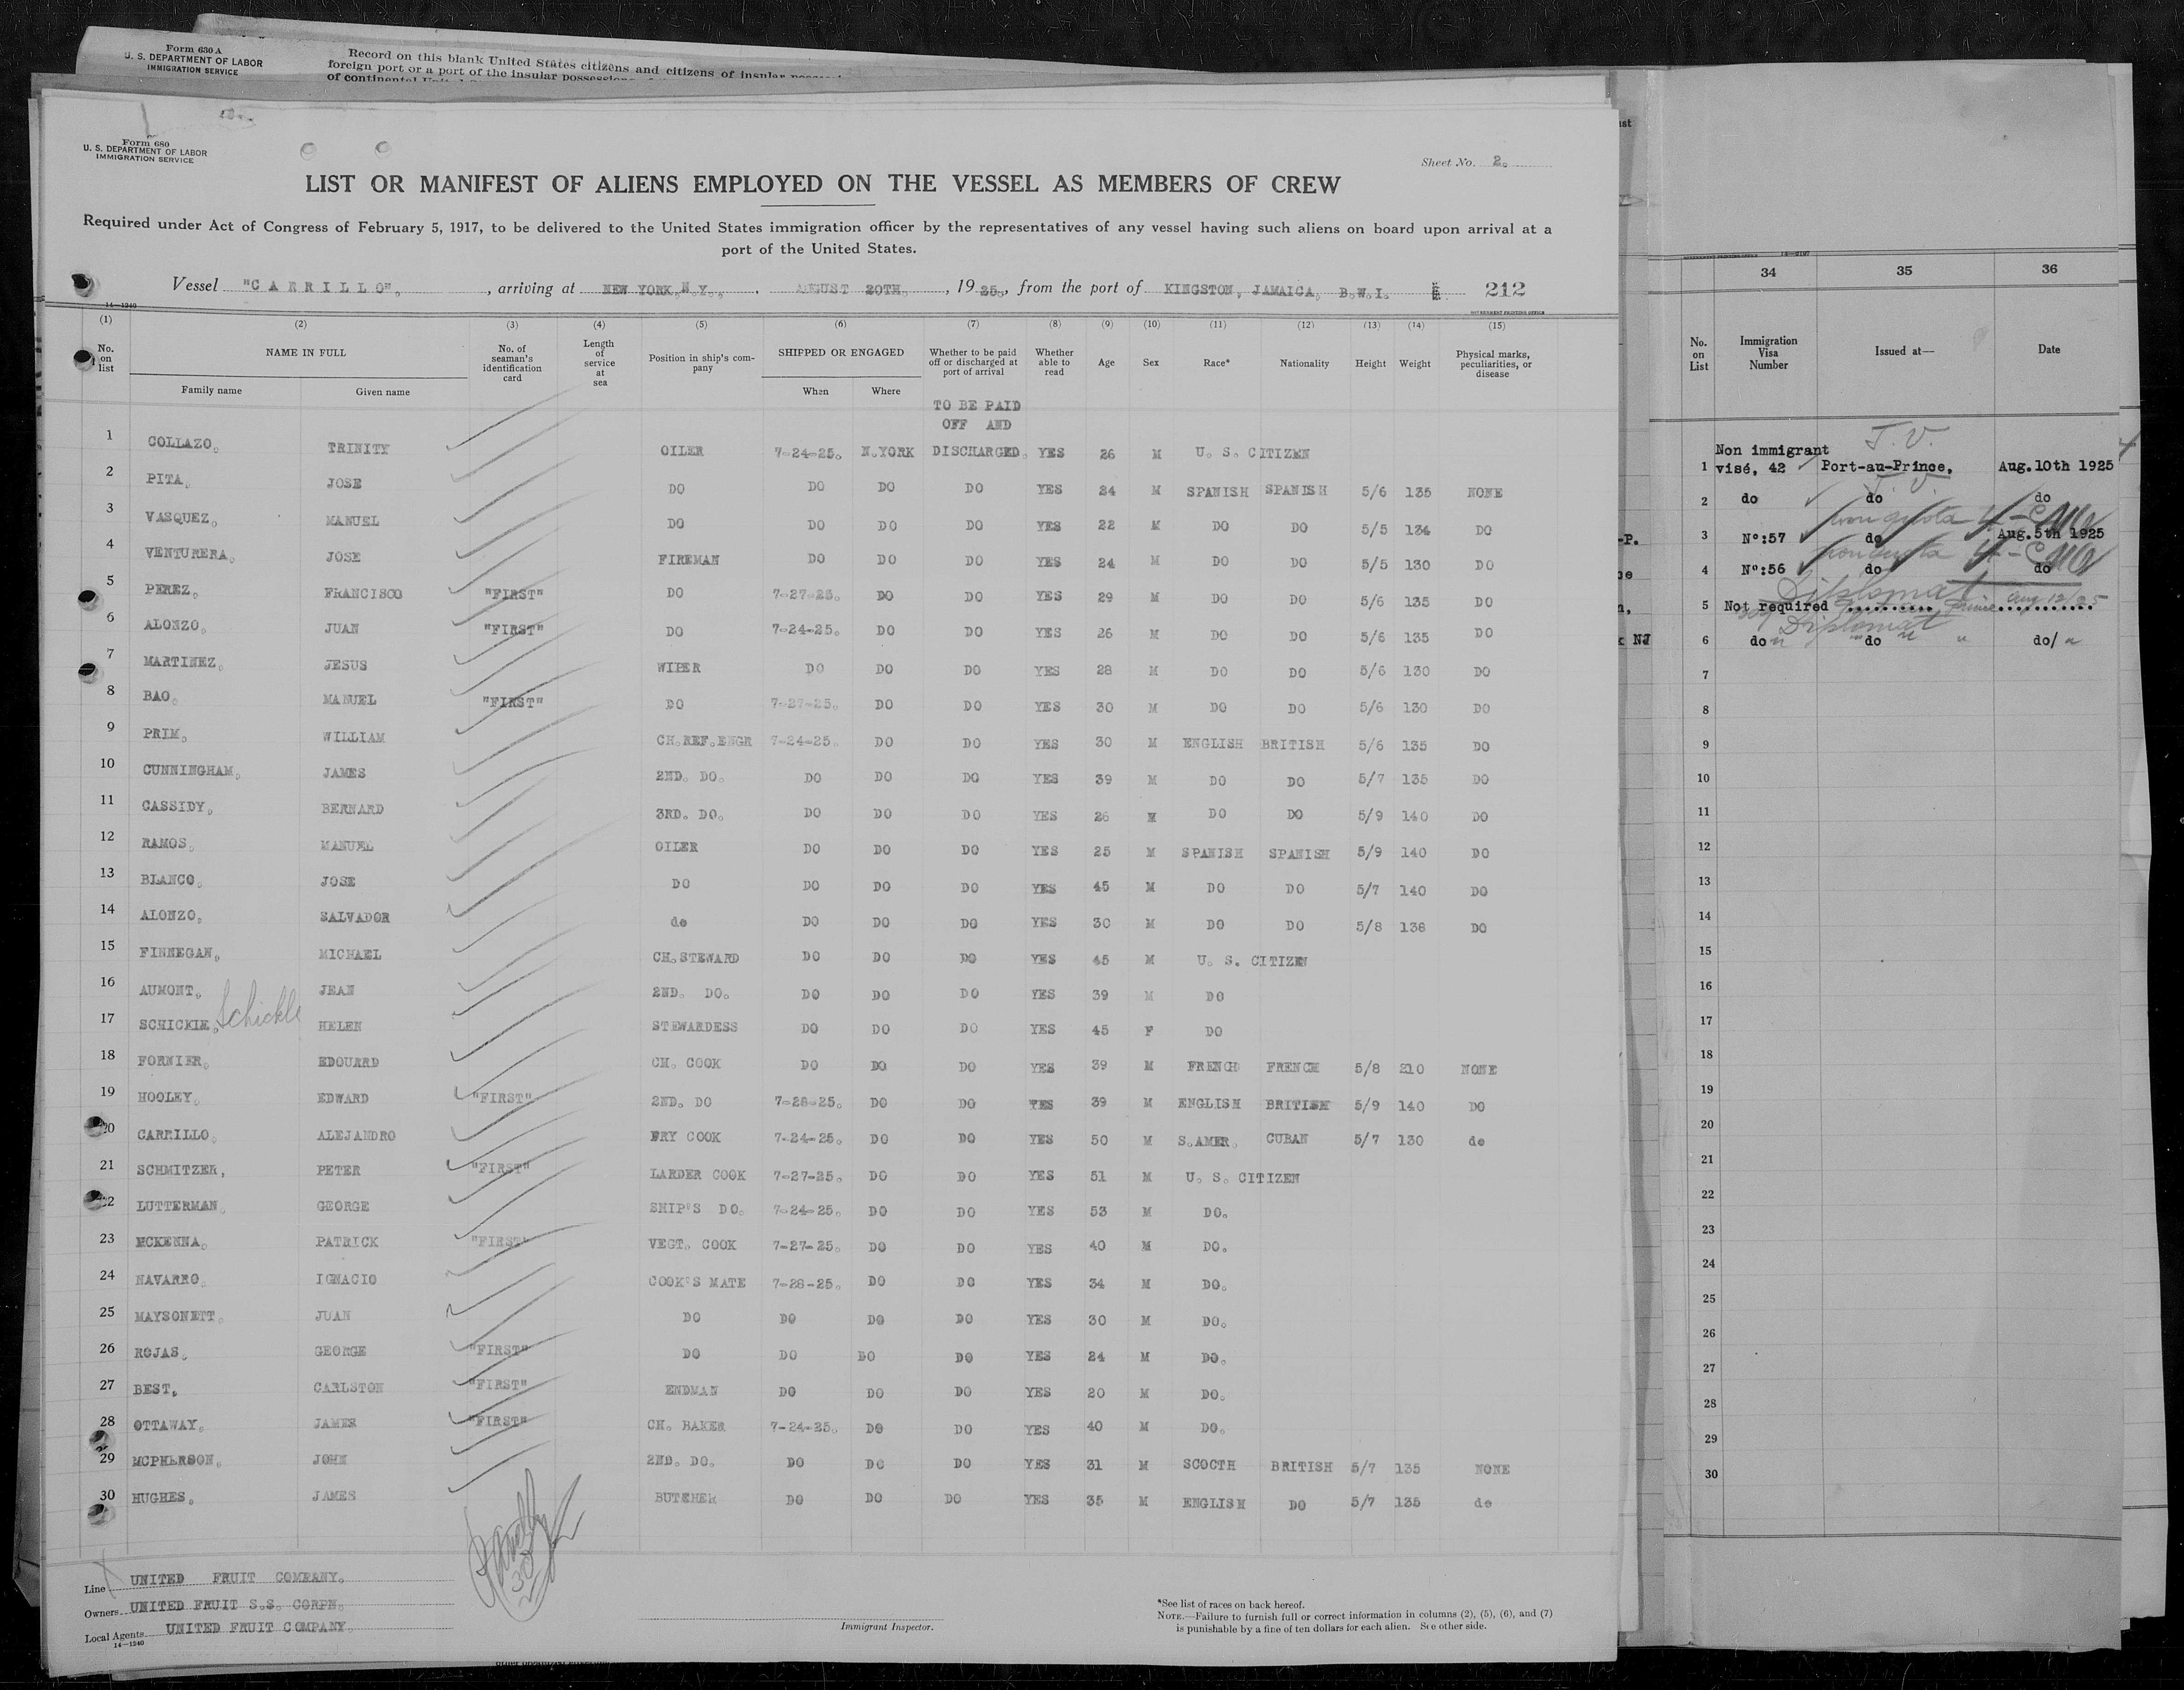 Form 630 A
U. S. DEPARTMENT OF LABOR
IMMIGRATION SERVICE
Record on this blank United States citizens and citizens of insular
foreign port or a port of the insular possessions
of continental
Form 680
U. S. DEPARTMENT OF LABOR
IMMIGRATION SERVICE
Sheet No. 2.
LIST OR MANIFEST OF ALIENS EMPLOYED ON THE VESSEL AS MEMBERS OF CREW
Required under Act of Congress of February 5, 1917, to be delivered to the United States immigration officer by the representatives of any vessel having such aliens on board upon arrival at a
port of the United States.
Vessel "CARRILLO", arriving at NEW YORK,N.Y., AUGUST 20TH, 1925, from the port of KINGSTON, JAMAICA, B.W.I. 212
14—1240
GOVERNMENT PRINTING OFFICE
(1) (2) (3) (4) (5) (6) (7) (8) (9) (10) (11) (12) (13) (14) (15)
No. on list NAME IN FULL Family name Given name No. of seaman's identification card Length of service at sea Position in ship's company SHIPPED OR ENGAGED When Where Whether to be paid off or discharged at port of arrival Whether able to read Age Sex Race* Nationality Height Weight Physical marks, peculiarities, or disease
TO BE PAID
OFF AND
1 COLLAZO, TRINITY OILER 7-24-25. N.YORK DISCHARGED. YES 26 M U. S. CITIZEN
2 PITA, JOSE DO DO DO DO YES 24 M SPANISH SPANISH 5/6 135 NONE
3 VASQUEZ, MANUEL DO DO DO DO YES 22 M DO DO 5/5 134 DO
4 VENTURERA, JOSE FIREMAN DO DO DO YES 24 M DO DO 5/5 130 DO
5 PEREZ, FRANCISCO "FIRST" DO 7-27-25. DO DO YES 29 M DO DO 5/6 135 DO
6 ALONZO, JUAN "FIRST" DO 7-24-25. DO DO YES 26 M DO DO 5/6 135 DO
7 MARTINEZ, JESUS WIPER DO DO DO YES 28 M DO DO 5/6 130 DO
8 BAO, MANUEL "FIRST" DO 7-27-25. DO DO YES 30 M DO DO 5/6 130 DO
9 PRIM, WILLIAM CH.REF.ENGR 7-24-25. DO DO YES 30 M ENGLISH BRITISH 5/6 135 DO
10 CUNNINGHAM, JAMES 2ND. DO. DO DO DO YES 39 M DO DO 5/7 135 DO
11 CASSIDY, BERNARD 3RD. DO. DO DO DO YES 26 M DO DO 5/9 140 DO
12 RAMOS, MANUEL OILER DO DO DO YES 25 M SPANISH SPANISH 5/9 140 DO
13 BLANCO, JOSE DO DO DO DO YES 45 M DO DO 5/7 140 DO
14 ALONZO, SALVADOR do DO DO DO YES 30 M DO DO 5/8 138 DO
15 FINNEGAN, MICHAEL CH.STEWARD DO DO DO YES 45 M U. S. CITIZEN
16 AUMONT, JEAN 2ND. DO. DO DO DO YES 39 M DO
17 SCHICKIE, Schickle HELEN STEWARDESS DO DO DO YES 45 F DO
18 FORNIER, EDOUARD CH. COOK DO DO DO YES 39 M FRENCH FRENCH 5/8 210 NONE
19 HOOLEY, EDWARD "FIRST" 2ND. DO 7-28-25. DO DO YES 39 M ENGLISH BRITISH 5/9 140 DO
20 CARRILLO, ALEJANDRO FRY COOK 7-24-25. DO DO YES 50 M S.AMER. CUBAN 5/7 130 do
21 SCHMITZER, PETER "FIRST" LARDER COOK 7-27-25. DO DO YES 51 M U. S. CITIZEN
22 LUTTERMAN, GEORGE SHIP'S DO. 7-24-25. DO DO YES 53 M DO.
23 MCKENNA, PATRICK "FIRST" VEGT. COOK 7-27-25. DO DO YES 40 M DO.
24 NAVARRO, IGNACIO COOK'S MATE 7-28-25. DO DO YES 34 M DO.
25 MAYSONETT, JUAN DO DO DO DO YES 30 M DO.
26 ROJAS, GEORGE "FIRST" DO DO DO DO YES 24 M DO.
27 BEST, CARLSTON "FIRST" ENDMAN DO DO DO YES 20 M DO.
28 OTTAWAY, JAMES "FIRST" CH. BAKER 7-24-25. DO DO YES 40 M DO.
29 MCPHERSON, JOHN 2ND. DO. DO DO DO YES 31 M SCOCTH BRITISH 5/7 135 NONE
30 HUGHES, JAMES BUTCHER DO DO DO YES 35 M ENGLISH DO 5/7 135 do
Line UNITED FRUIT COMPANY.
Owners UNITED FRUIT S.S. CORPN.
Local Agents UNITED FRUIT COMPANY.
14—1240
Immigrant Inspector.
*See list of races on back hereof.
NOTE.—Failure to furnish full or correct information in columns (2), (5), (6), and (7)
is punishable by a fine of ten dollars for each alien. See other side.
34 35 36
No. on List Immigration Visa Number Issued at— Date
T. V.
Non immigrant
1 visé, 42 Port-au-Prince, Aug.10th 1925
T. V.
2 do do do
3 Nº:57 do Aug. 5th 1925
4 Nº:56 do do
Diplomat
5 Not required Prince Aug 12/25
Diplomat
6 do do do/
7
8
9
10
11
12
13
14
15
16
17
18
19
20
21
22
23
24
25
26
27
28
29
30